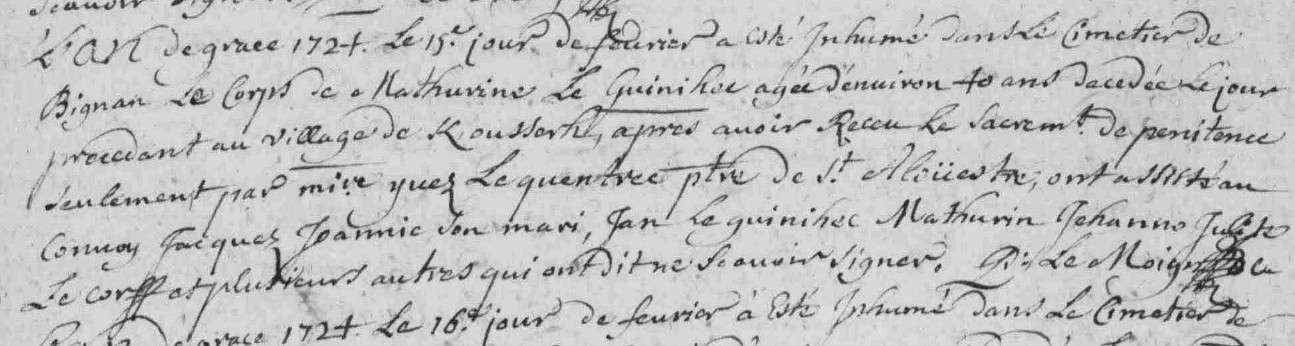 L'AN de grace 1724. Le 15.e jour de fevrier a Esté Inhumé dans Le Cimetier de
Bignan Le Corps de Mathurine Le Guinihec agée d'environ 40 ans decedée Le jour
precedant au village de Kousserh, apres avoir Receu Le Sacrem.t de penitence
seulement par mi.re yves Le quentrec ptre de s.t Aloüestre, ont assisté au
convoy Jacques Joannic son mari, Jan Le guinihec Mathurin Jehanno
Le corff et plusieurs autres qui ont dit ne scavoir signer. Le Moign
de grace 1724. Le 16.e jour de fevrier à Esté Inhumé dans Le Cimetier de